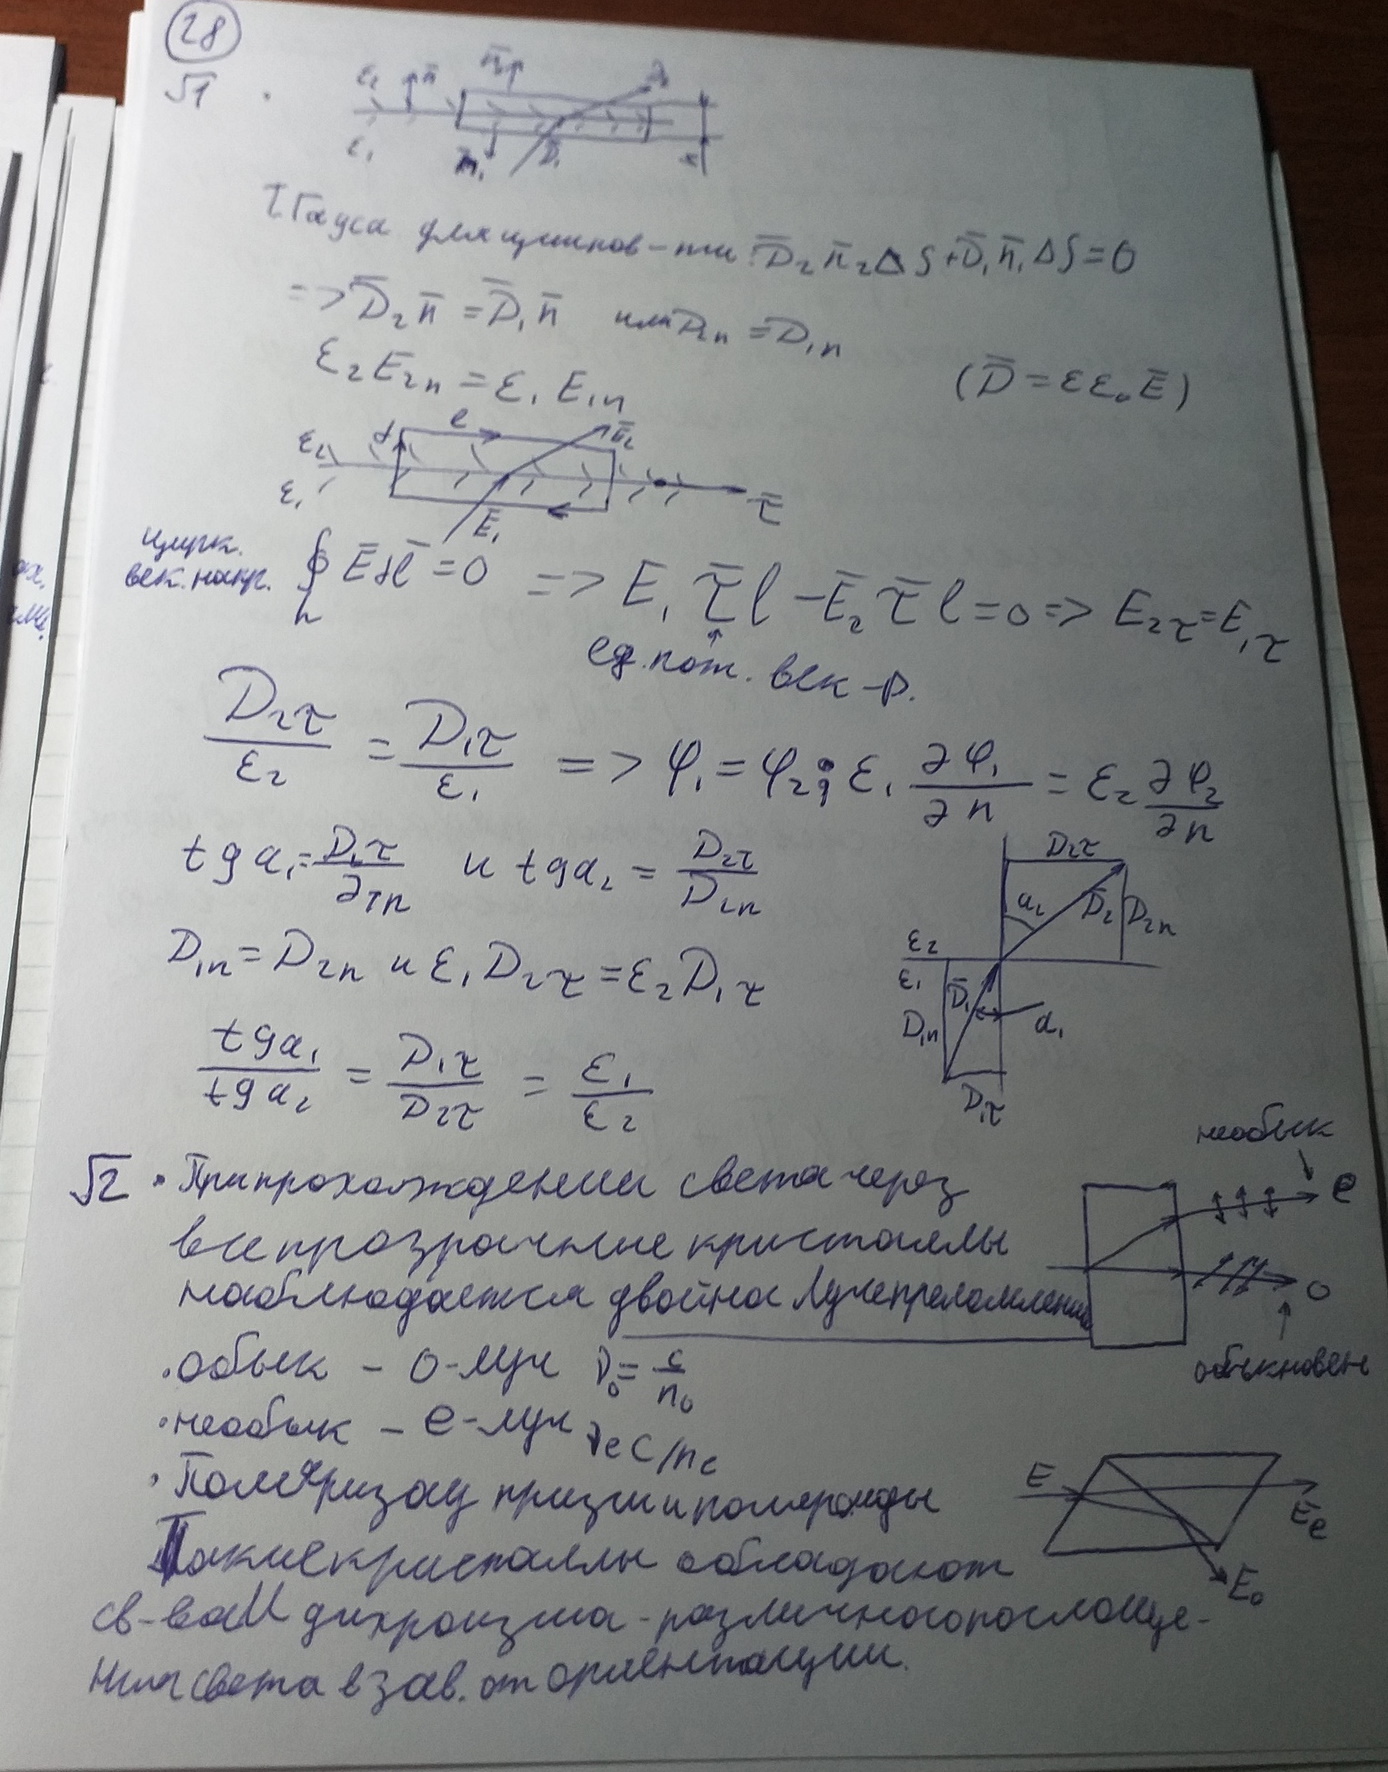 28
√1
ε₁ n̄ n̄₂
ε₁ n̄₁ D̄₁
Т. Гауса для цилинов-ти D̄₂n̄₂ΔS+D̄₁n̄₁ΔS=0
=> D̄₂n̄ = D̄₁n̄ или D₂n = D₁n
ε₂E₂n = ε₁E₁n (D̄ = εε₀Ē)
ε₂ d l Ē₂
ε₁ Ē₁ τ̄
цирк.
век. напр. ∮ Ēdl̄ = 0 => Ē₁τ̄l - Ē₂τ̄l = 0 => E₂τ = E₁τ
L
ед. пот. век-р.
D₂τ/ε₂ = D₁τ/ε₁ => φ₁ = φ₂; ε₁ ∂φ₁/∂n = ε₂ ∂φ₂/∂n
tgα₁ = D₁τ/D₁n и tgα₂ = D₂τ/D₂n
D₁n = D₂n и ε₁D₂τ = ε₂D₁τ
tgα₁/tgα₂ = D₁τ/D₂τ = ε₁/ε₂
D₂τ
α₂ D̄₂ D₂n
ε₂
ε₁ D̄₁
D₁n α₁
D₁τ
√2 • При прохождении света через
все прозрачные кристаллы
наблюдается двойное лучепреломление
необык
e
o
обыкновен
• обык - o-луч υ₀ = c/n₀
• необык - e-луч υe c/ne
• Поляризац призмы и поляроиды
E
Ēe
E₀
Такие кристаллы обладают
св-вами дихроизма - различного поглоще-
ния света в зав. от ориентации.